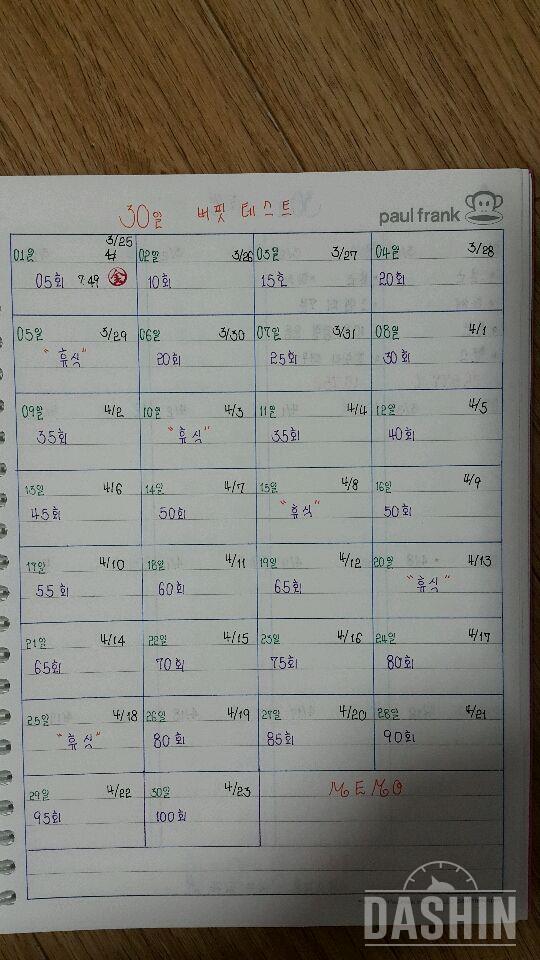 30일 버핏 테스트
paul frank
01일 3/25 02일 3/26 03일 3/27 04일 3/28
05회 7:49 10회 15회 20회
05일 3/29 06일 3/30 07일 3/31 08일 4/1
"휴식" 20회 25회 30회
09일 4/2 10일 4/3 11일 4/4 12일 4/5
35회 "휴식" 35회 40회
13일 4/6 14일 4/7 15일 4/8 16일 4/9
45회 50회 "휴식" 50회
17일 4/10 18일 4/11 19일 4/12 20일 4/13
55회 60회 65회 "휴식"
21일 4/14 22일 4/15 23일 4/16 24일 4/17
65회 70회 75회 80회
25일 4/18 26일 4/19 27일 4/20 28일 4/21
"휴식" 80회 85회 90회
29일 4/22 30일 4/23 MEMO
95회 100회
DASHIN